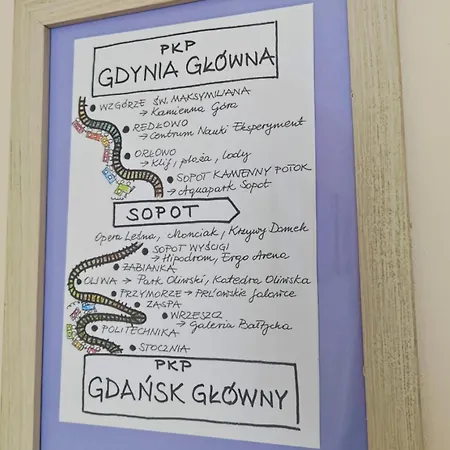 PKP
GDYNIA GŁÓWNA
WZGÓRZE ŚW. MAKSYMILIANA
→ Kamienna Góra
REDŁOWO
→ Centrum Nauki Eksperyment
ORŁOWO
→ Klif, plaża, lody
SOPOT KAMIENNY POTOK
→ Aquapark Sopot
SOPOT
Opera Leśna, Monciak, Krzywy Domek
SOPOT WYŚCIGI
→ Hipodrom, Ergo Arena
ŻABIANKA
OLIWA → Park Oliwski, Katedra Oliwska
PRZYMORZE → PRL'owskie falowce
ZASPA
WRZESZCZ
→ Galeria Bałtycka
POLITECHNIKA
STOCZNIA
PKP
GDAŃSK GŁÓWNY